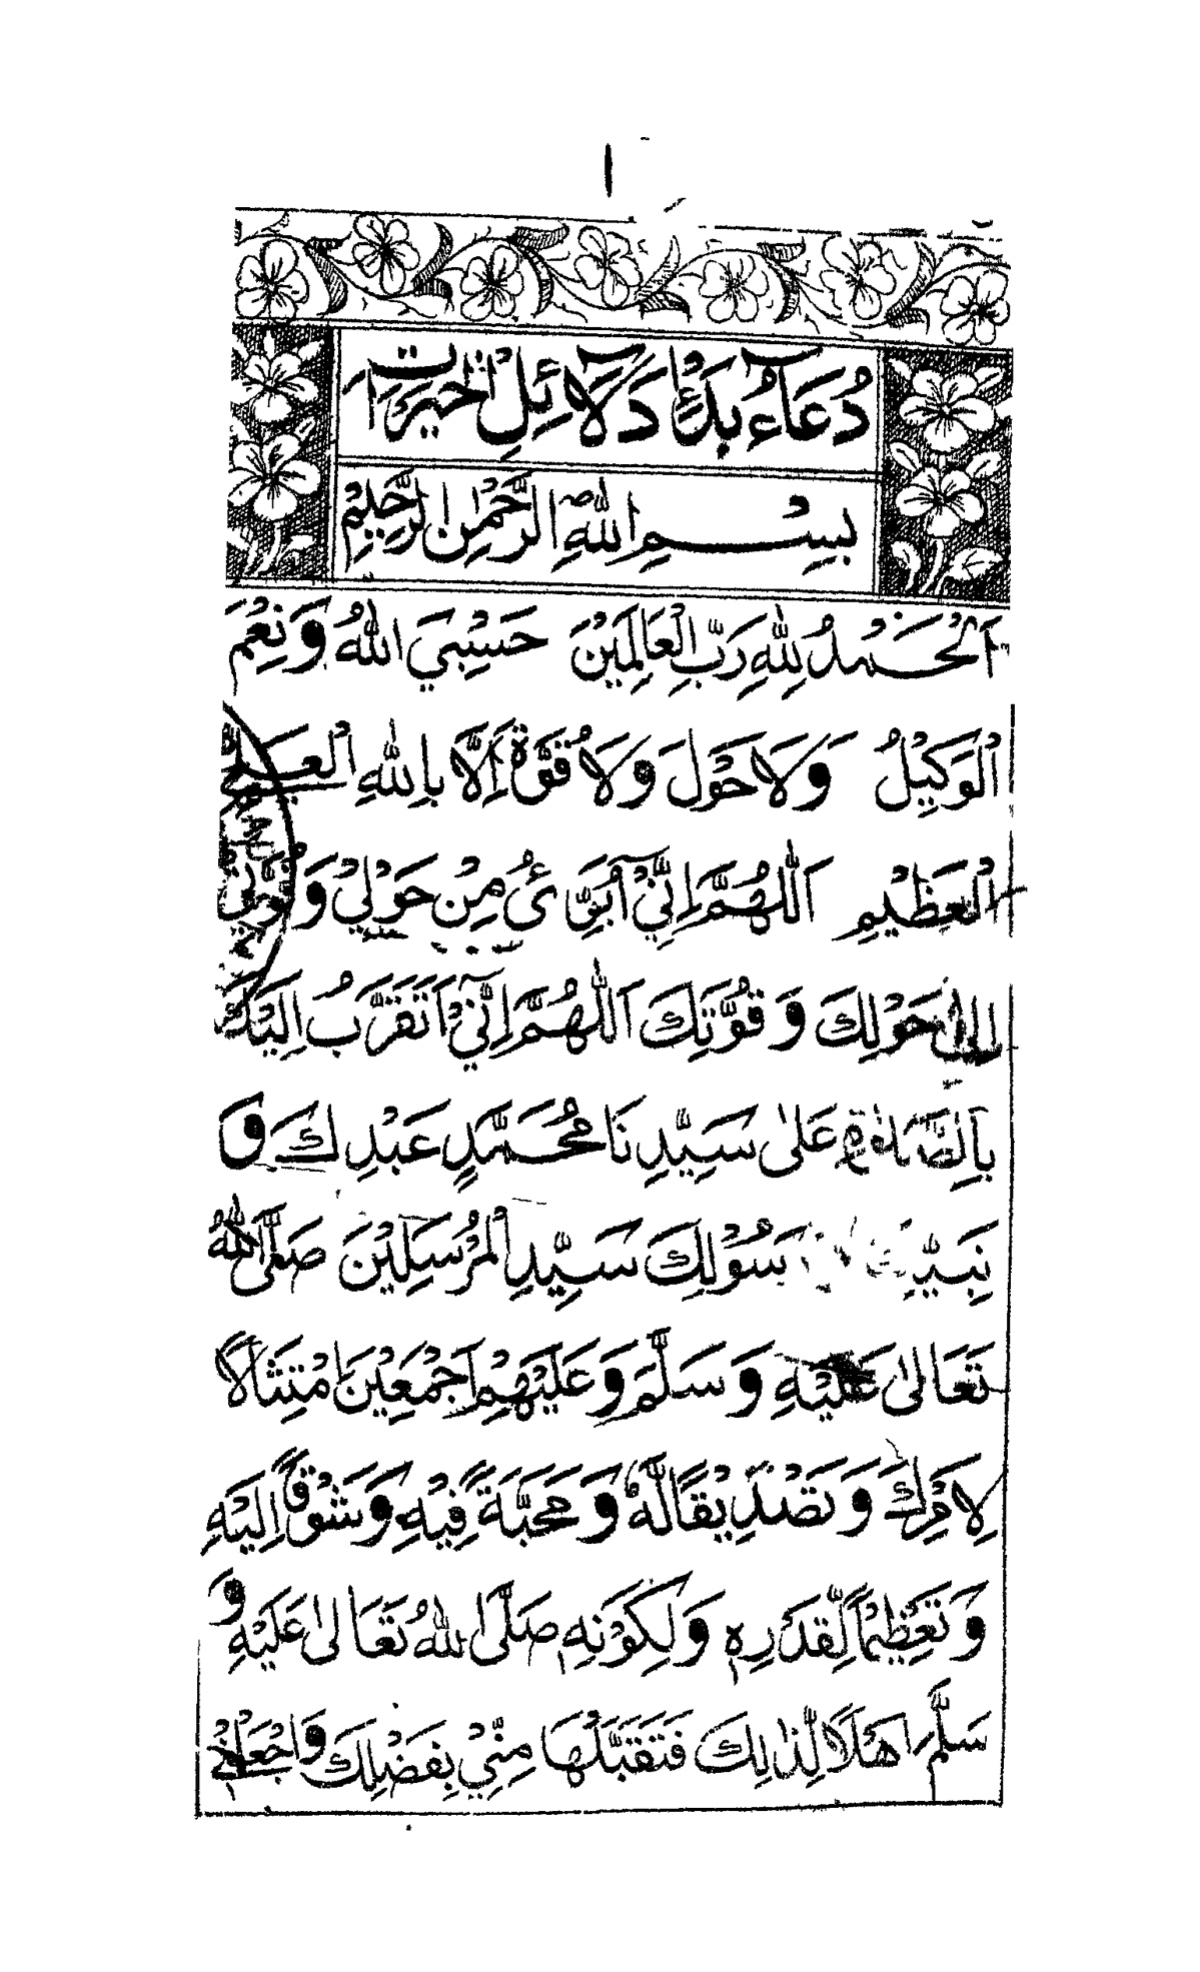 ١
دُعَآءُ بَدْءِ دَلَآئِلِ الْخَيْرَاتِ
بِسْمِ اللّٰهِ الرَّحْمٰنِ الرَّحِيْمِ
اَلْحَمْدُ لِلّٰهِ رَبِّ الْعَالَمِيْنَ حَسْبِيَ اللّٰهُ وَنِعْمَ
الْوَكِيْلُ وَلَا حَوْلَ وَلَا قُوَّةَ اِلَّا بِاللّٰهِ الْعَلِيِّ
الْعَظِيْمِ اَللّٰهُمَّ اِنِّيْٓ اُبَرِّئُ مِنْ حَوْلِيْ وَقُوَّتِيْ
اِلٰى حَوْلِكَ وَقُوَّتِكَ اَللّٰهُمَّ اِنِّيْٓ اَتَقَرَّبُ اِلَيْكَ
بِالصَّلٰوةِ عَلٰى سَيِّدِنَا مُحَمَّدٍ عَبْدِكَ وَ
نَبِيِّكَ سُوْلِكَ سَيِّدِ الْمُرْسَلِيْنَ صَلَّى اللّٰهُ
تَعَالٰى عَلَيْهِ وَسَلَّمَ وَعَلَيْهِمْ اَجْمَعِيْنَ امْتِثَالًا
لِاَمْرِكَ وَتَصْدِيْقًا لَّهٗ وَمَحَبَّةً فِيْهِ وَشَوْقًا اِلَيْهِ
وَتَعْظِيْمًا لِّقَدْرِهٖ وَلِكَوْنِهٖ صَلَّى اللّٰهُ تَعَالٰى عَلَيْهِ وَ
سَلَّمَ اَهْلًا لِّذٰلِكَ فَتَقَبَّلْهَا مِنِّيْ بِفَضْلِكَ وَاجْعَلْنِيْ